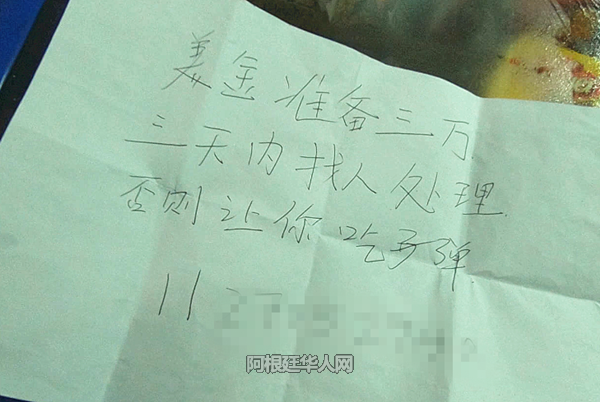 美金准备三万
三天内找人处理
否则让你吃子弹
11
阿根廷华人网